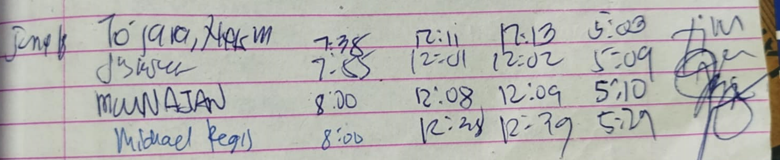 June 6 Tojara, 7:38 12:11 12:13 5:03
7:55 12:01 12:02 5:09
MUNAJAN 8:00 12:08 12:09 5:10
Michael Regis 8:00 12:38 12:39 5:29